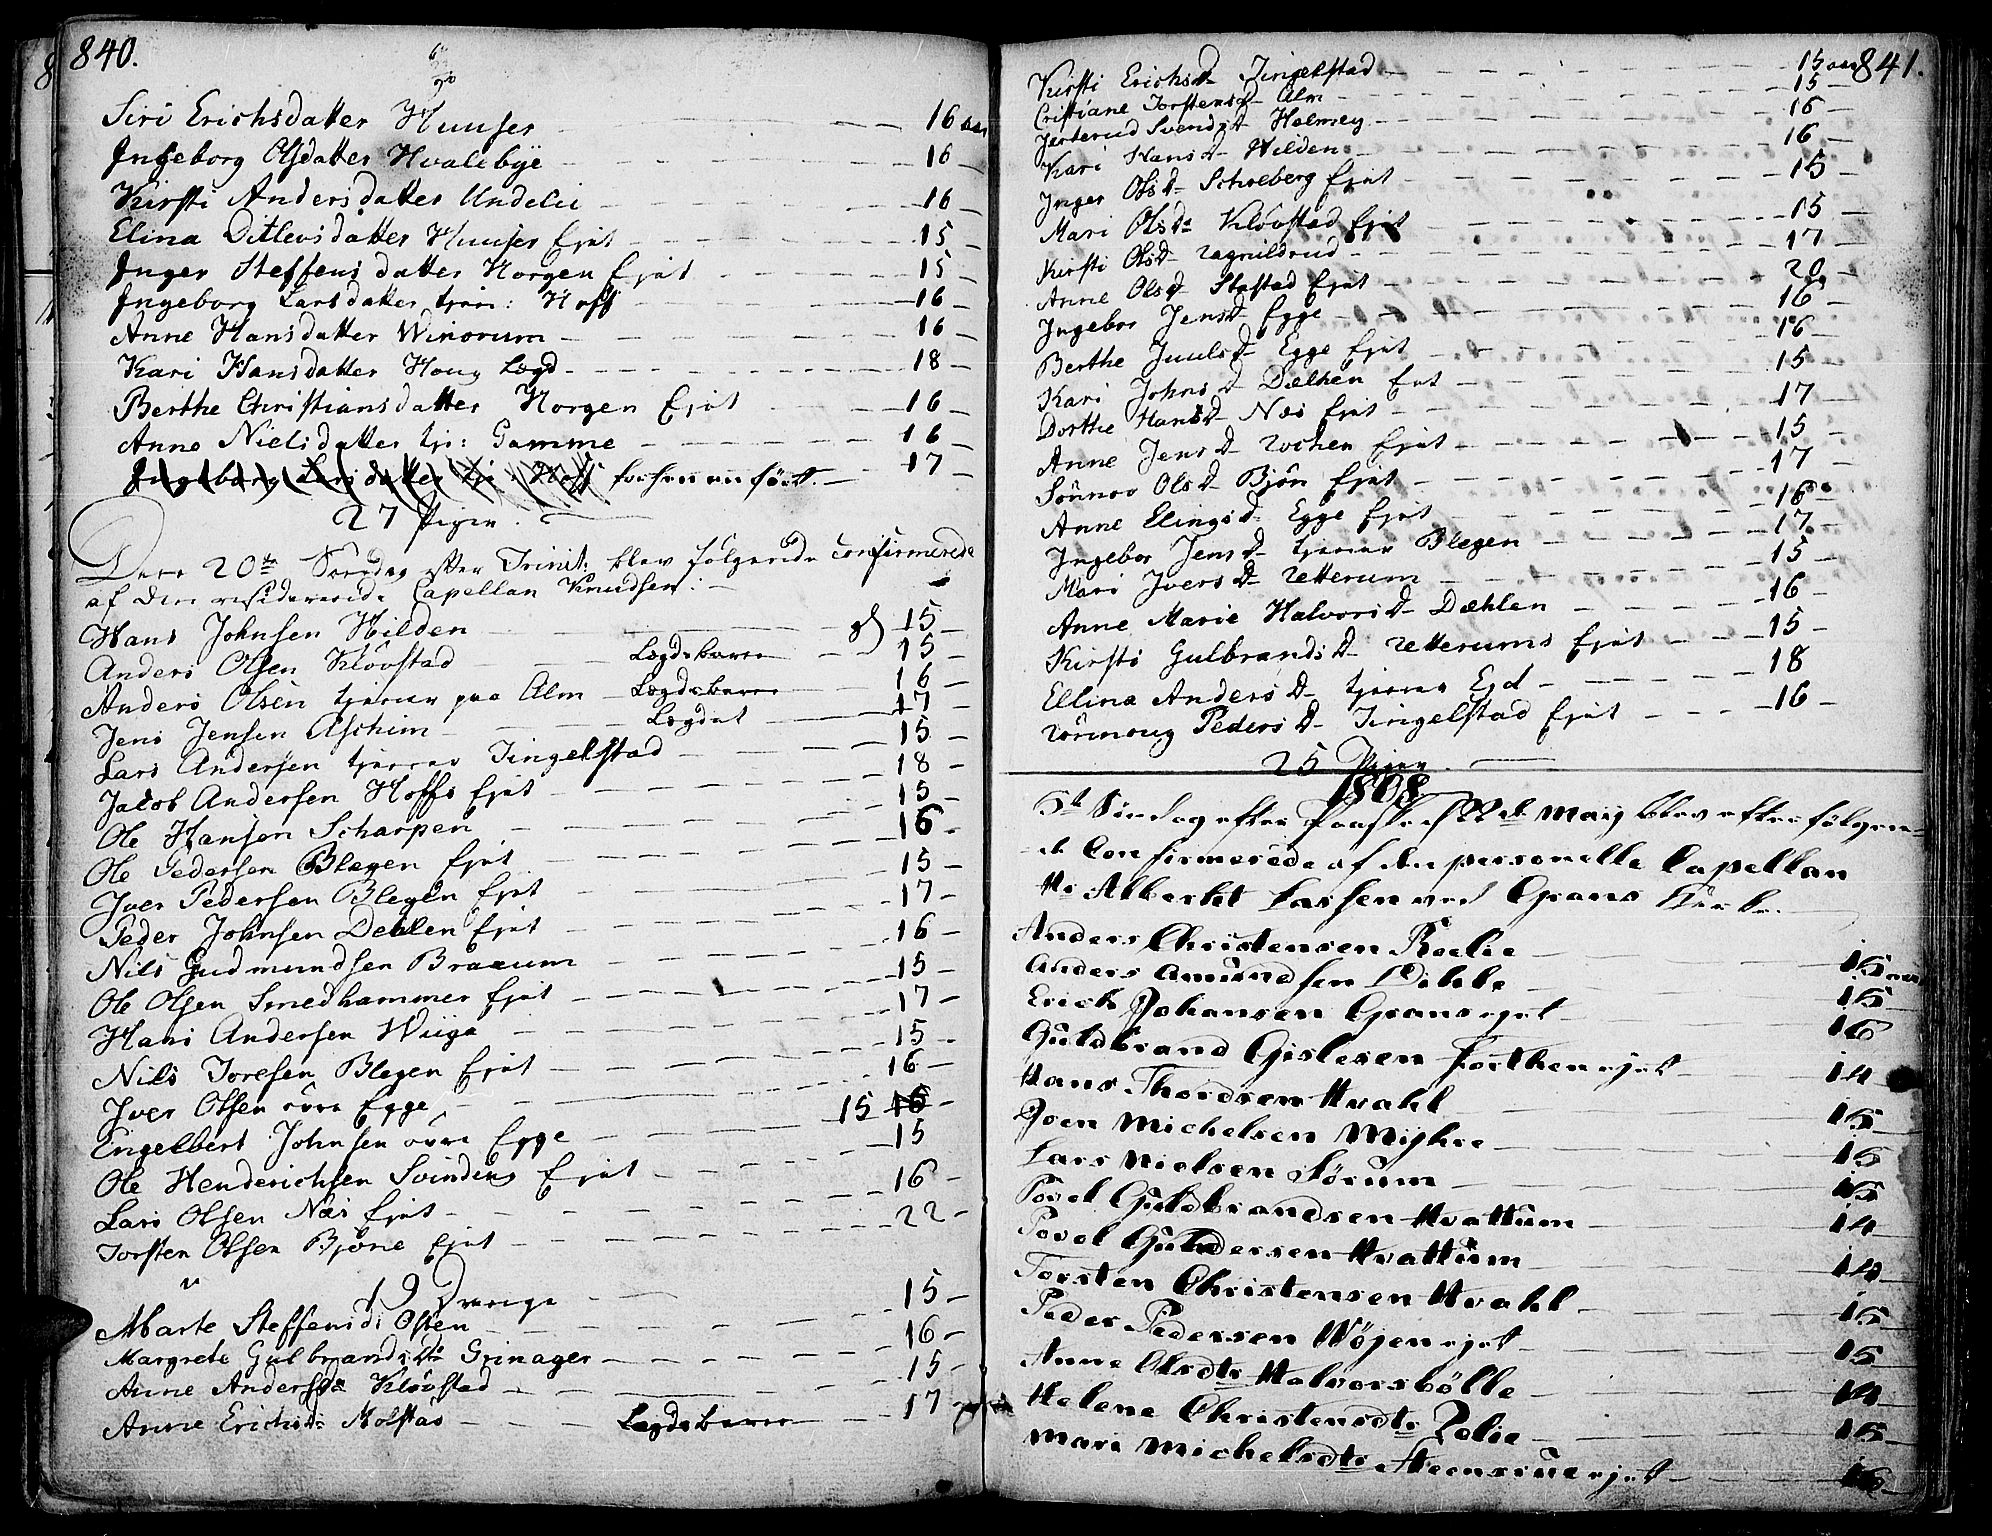 840.
Siri Erichsdatter Huuser 16 aar
Ingeborg Olsdatter Hvalebye 16
Kirsti Andersdatter Undelii 16
Elina Ditlevsdatter Huuser Ejet 15
Inger Steffensdatter Horgen Ejet 15
Ingeborg Larsdatter tjen: Hoff 16
Anne Hansdatter Winorum 16
Kari Hansdatter Houg Lægd 18
Berthe Christiansdatter Horgen Ejet 16
Anne Nielsdatter tje: Gamme 16
Ingeborg Larsdatter tje: Hoff forhen anført 17
27 Piger.
Den 20de Søndag efter Trinit: blev følgende confirmerede
af den residerende Capellan Knudsen:
Hans Johnsen Hilden 15
Anders Olsen Klövstad Lægdsbarn 15
Anders Olsen tjener paa Alm Lægdsbarn 16
Jens Jensen Aschim Lægdet 17
Lars Andersen tjener Tingelstad 15
Jacob Andersen Hoffs Ejet 18
Ole Hansen Scharpen 15
Ole Pedersen Blegen Ejet 16
Iver Pedersen Blegen Ejet 15
Peder Johnsen Dehlen Ejet 17
Nils Gudmundsen Braarum 16
Ole Olsen Smedhammer Ejet 15
Hans Andersen Wiiga 17
Nils Toresen Blegen Ejet 15
Iver Olsen övre Egge 16
Engelbert Johnsen övre Egge 15 16
Ole Henderichsen Svinding Ejet 15
Lars Olsen Næs Ejet 16
Torsten Olsen Bjöne Ejet 22
19 Drenge
Marte Steffensd: Osten 15
Margrete Gulbrandsdr Grinager 16
Anne Andersdr Klövstad 15
Anne Erichsdr Molstad Lægdsbarn 17
841.
Kirsti Erichsd Tingelstad 15 aar
Cristiane Torstensd Alm 15
Jerterud Svendsd Helmey 16
Kari Hansd Hilden 16
Inger Olsd Schoeberg Ejet 15
Mari Olsd Klövstad Ejet 15
Kirsti Olsd Ragnildrud 17
Anne Olsd Stastad Ejet 20
Ingebor Jensd Egge 16
Berthe Juulsd Egge Ejet 16
Kari Johnsd Dælhen Eiet 15
Dorthe Hansd Næs Ejet 17
Anne Jensd Rochen Ejet 15
Sönnov Olsd Bjön Ejet 17
Anne Elingsd Egge Ejet 16
Ingebor Jensd tjener Blegen 17
Mari Iversd Retterum 15
Anne Marie Halvorsd Dæhlen 16
Kirsti Gulbrandsd Retterums Ejet 15
Ellina Andersd tjener Ejd 18
Rönnoug Pedersd Tingelstad Ejet 16
25 Piger.
1808
5t Sindag efter Paaske d 22de Maij blev efterfølgen=
de Confirmerede af den personelle Capellan
Hr Albeckt Lassen ved Grans Kirke.
Anders Christensen Rælie 15 aar
Anders Amundsen Dihle 15
Erich Johansen Grans ejet 16
Guldbrand Gislesen Horthen ejet 14
Hans Thordsen Hvahl 15
Joen Michelsen Mijhre 15
Lars Nielsen Sørum 15
Povel Guldbrandsen Hvattum 14
Povel Gulndersen Hvattum 14
Torsten Christensen Hvahl 15
Peder Pedersen Wøjen ejet 15
Anne Olsdtr Halvorsbølle 14
Helene Christensdtr Rælie 15
Mari Michelsdtr Steensrue ejet 16